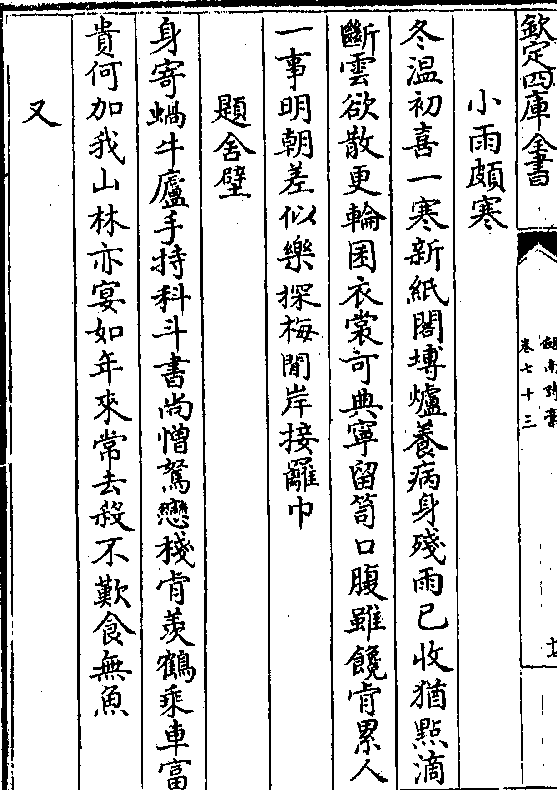 欽定四庫全書
劍南詩藁
卷七十三
小雨頗寒
冬溫初喜一寒新紙閣塼爐養病身殘雨已收猶點滴
斷雲欲散更輪囷衣裳可典寧留笥口腹雖饞肯累人
一事明朝差似樂探梅閒岸接䍦巾
題舍壁
身寄蝸牛廬手持科斗書尚憎駑戀棧肯羨鶴乘車富
貴何加我山林亦宴如年來常去殺不歎食無魚
又